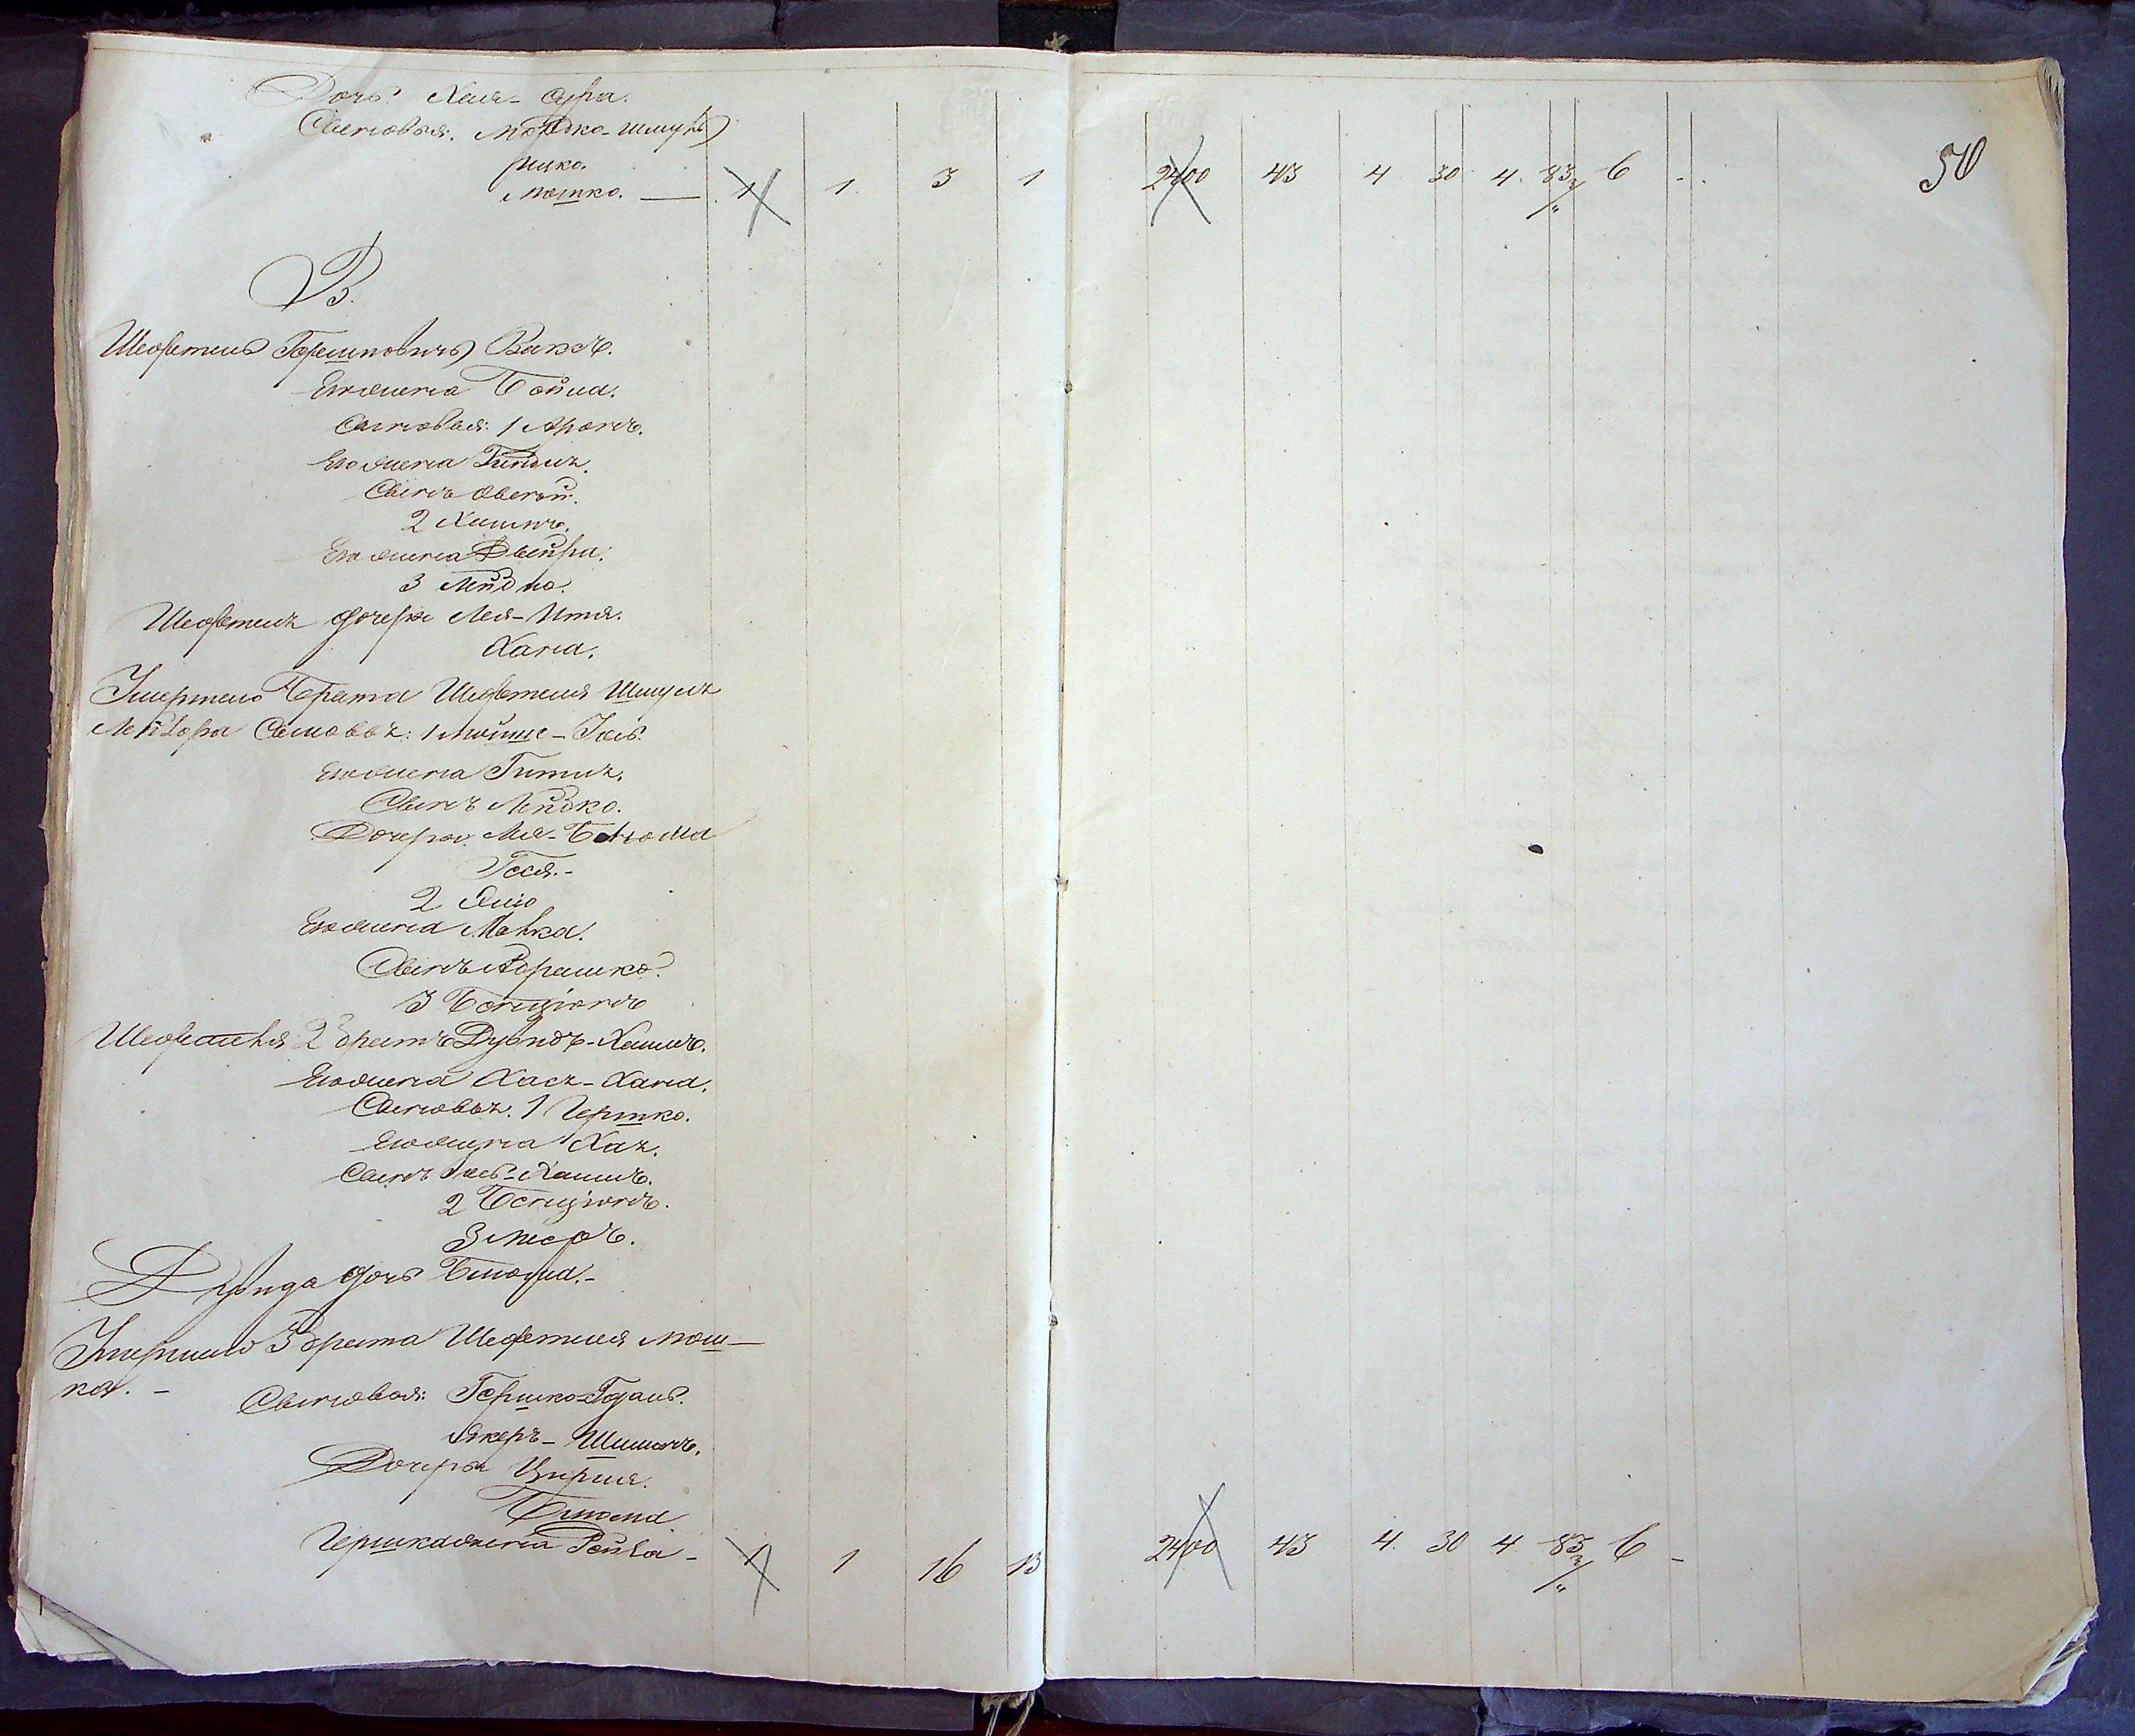 Дочь: Хая-Сура.
Сыновья: Мордко-Шмуль
Ицко.
Мошко. — 1 1 3 1 2400 43 4 30 4 83 6 - 50
В.
Шефтель Гершковичъ Ваксъ.
Его жена Бейла.
Сыновья: 1 Аронъ.
Его жена
Сынъ
2 Хаимъ.
Его жена Двейра.
3 Лейзко.
Шефтеля дочери Лея-Итя.
Хана.
Умершаго брата Шефтеля Шмуля
Лейзора Сыновья: 1 Мойше-Іось.
Его жена Гитля.
Сынъ Лейзко.
Дочери: Лея-
Гося.-
2
Его жена Малка.
Сынъ Абрашко.
3 Бенціонъ
Шефтеля 2 братъ Дувидъ-Хаимъ.
Его жена Хася-Хана.
Сыновья: 1 Гершко.
Его жена Хая.
Сынъ Іось-Хаимъ.
2 Бенціонъ.
3
Дувида дочь Блюма.-
Умершаго 3 брата Шефтеля Мош-
ка. - Сыновья: Гершко-Гдаль.
Янкеръ-Шимонъ.
Дочери Цирля.
Блюма
Гершка жена Рейза - 1 1 16 13 2400 43 4 30 4 83 6 -